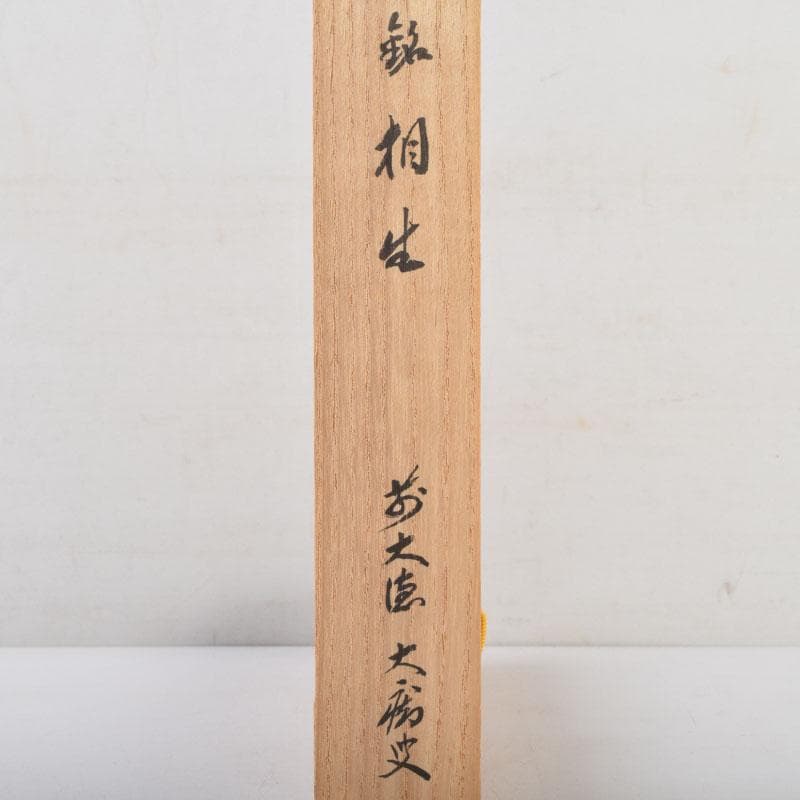 銘 相生
前大徳 大痴叟